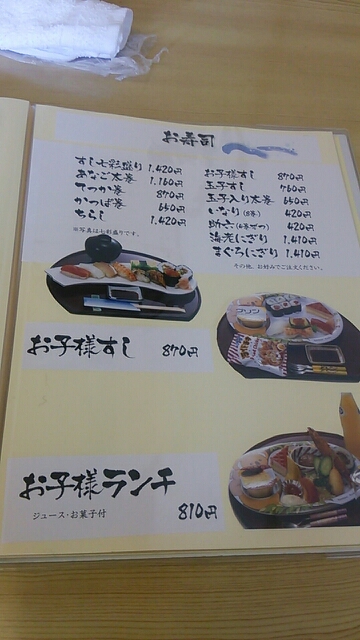 お寿司
すし七彩盛り 1,420円
あなご太巻 1,160円
てつか巻 870円
かっぱ巻 650円
ちらし 1,420円
※写真は七彩盛りです。
お子様すし 870円
玉子すし 760円
玉子入り太巻 650円
いなり(8巻) 420円
助六 420円
海老にぎり 1,410円
まぐろにぎり 1,410円
その他、お好みでご注文ください。
お子様すし 870円
プリン
お子様ランチ
ジュース・お菓子付
810円